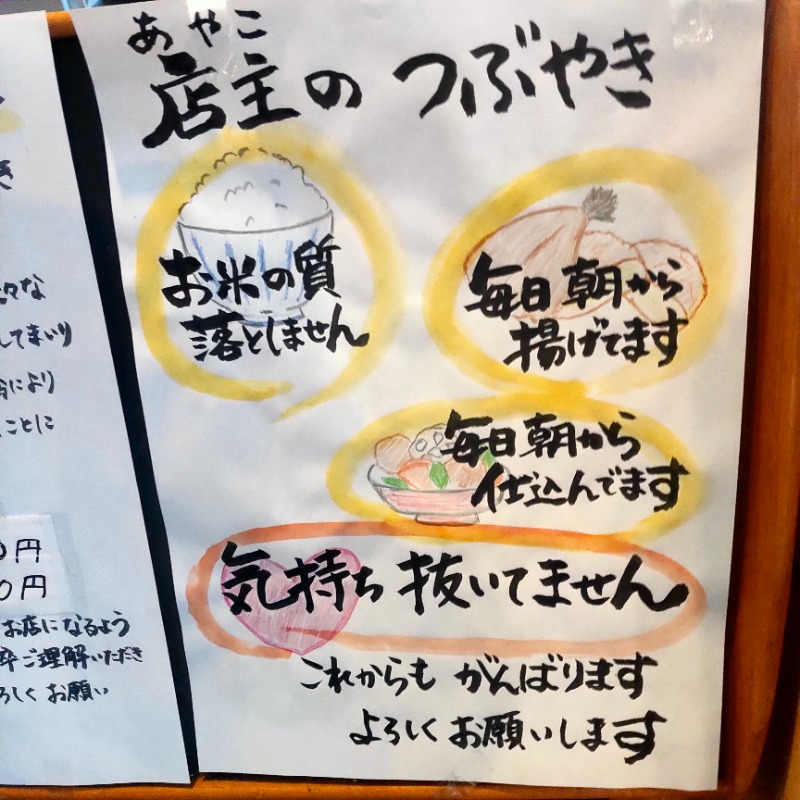 あやこ
店主の つぶやき
お米の質
落としません
毎日朝から
揚げてます
毎日朝から
仕込んでます
気持ち 抜いてません
これからも がんばります
よろしく お願いします
き
々な
してまいり
により
ことに
0円
0円
お店になるよう
ご理解いただき
ろしく お願い